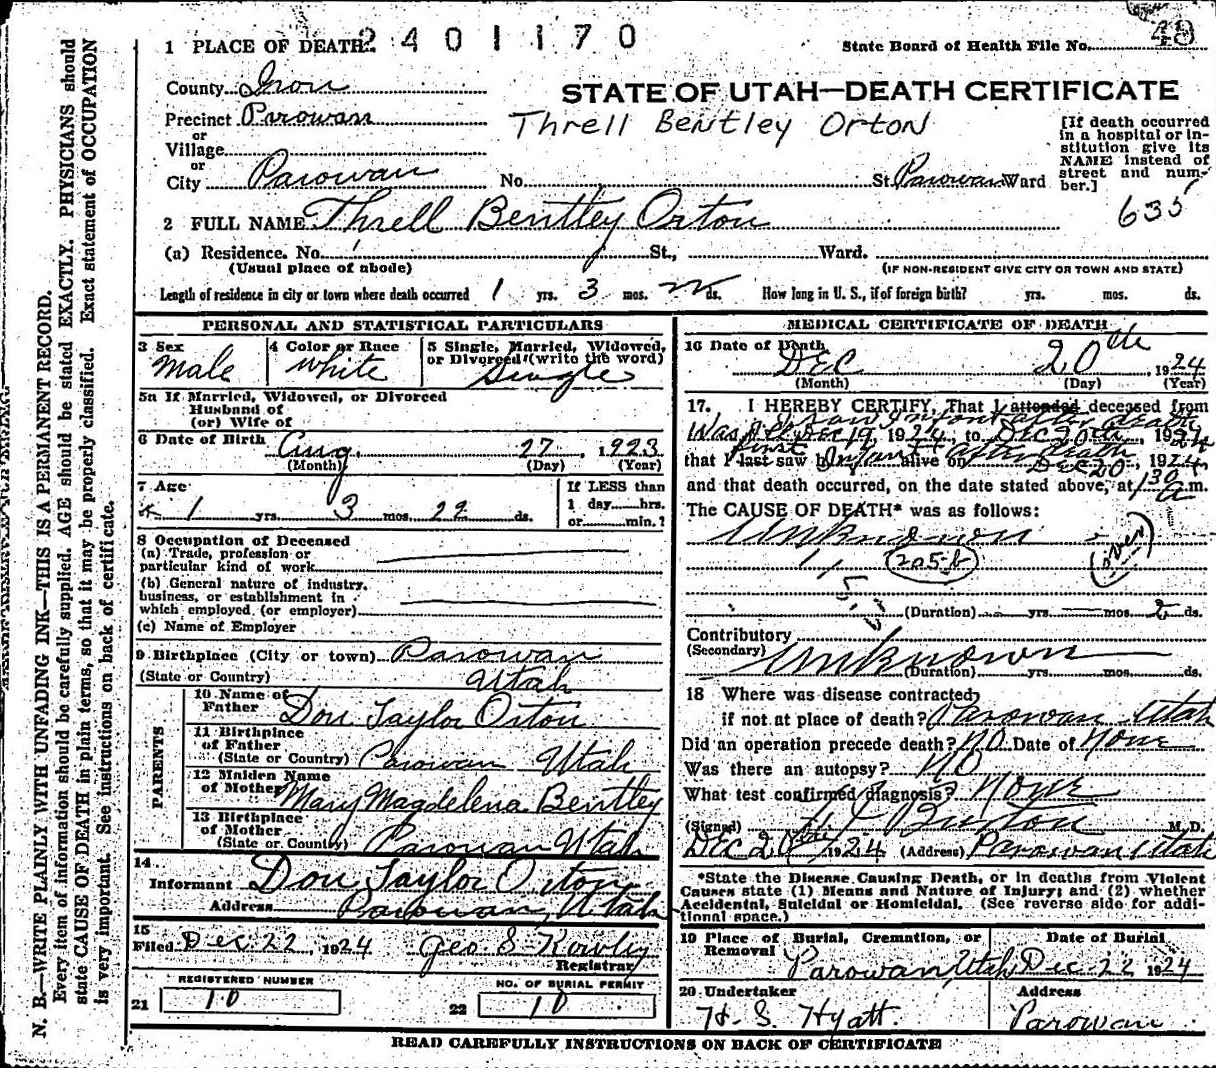 2401170
1 PLACE OF DEATH
State Board of Health File No. 49
County Iron
STATE OF UTAH—DEATH CERTIFICATE
Precinct Parowan
Threll Bentley Orton
or
Village
or
City Parowan No. St. Parowan Ward
[If death occurred in a hospital or in-
stitution give its
NAME instead of
street and num-
ber.]
635
2 FULL NAME Threll Bentley Orton
(a) Residence. No. St., Ward.
(Usual place of abode) (IF NON-RESIDENT GIVE CITY OR TOWN AND STATE)
Length of residence in city or town where death occurred 1 yrs. 3 mos. ds. How long in U. S., if of foreign birth? yrs. mos. ds.
PERSONAL AND STATISTICAL PARTICULARS
3 Sex 4 Color or Race 5 Single, Married, Widowed,
or Divorced (write the word)
Male White Single
5a If Married, Widowed, or Divorced
Husband of
(or) Wife of
6 Date of Birth Aug. 27, 1923
(Month) (Day) (Year)
7 Age If LESS than
1 day hrs.
or min.?
1 yrs. 3 mos. 22 ds.
8 Occupation of Deceased
(a) Trade, profession or
particular kind of work
(b) General nature of industry,
business, or establishment in
which employed (or employer)
(c) Name of Employer
9 Birthplace (City or town) Parowan
(State or Country) Utah
PARENTS
10 Name of
Father Don Taylor Orton
11 Birthplace
of Father
(State or Country) Parowan Utah
12 Maiden Name
of Mother Mary Magdelena Bentley
13 Birthplace
of Mother
(State or Country) Parowan Utah
14
Informant Don Taylor Orton
Address Parowan, Utah
15
Filed Dec 22, 1924 Geo S Rowley
Registrar
REGISTERED NUMBER NO. OF BURIAL PERMIT
21 10 22 10
MEDICAL CERTIFICATE OF DEATH
16 Date of Death
DEC 20th, 1924
(Month) (Day) (Year)
17. I HEREBY CERTIFY, That I attended deceased from
saw Infant after death
Was Ill Dec 19, 1924, to DEC 20th, 1924
that I last saw h alive on DEC 20, 1924
first Infant after death
and that death occurred, on the date stated above, at 1 30 a.m.
The CAUSE OF DEATH* was as follows:
Unknown
205-b
(over)
(Duration) yrs. mos. 2 ds.
Contributory
(Secondary) Unknown
(Duration) yrs. mos. ds.
18 Where was disease contracted
if not at place of death? Parowan Utah
Did an operation precede death? NO Date of None
Was there an autopsy? NO
What test confirmed diagnosis? None
(Signed) Burton M.D.
DEC 20th, 1924 (Address) Parowan Utah
*State the Disease Causing Death, or in deaths from Violent
Causes state (1) Means and Nature of Injury; and (2) whether
Accidental, Suicidal or Homicidal. (See reverse side for addi-
tional space.)
19 Place of Burial, Cremation, or
Removal Date of Burial
Parowan, Utah Dec 22 1924
20 Undertaker Address
H. S. Hyatt. Parowan
READ CAREFULLY INSTRUCTIONS ON BACK OF CERTIFICATE
N. B.—WRITE PLAINLY WITH UNFADING INK—THIS IS A PERMANENT RECORD.
Every item of information should be carefully supplied. AGE should be stated EXACTLY. PHYSICIANS should
state CAUSE OF DEATH in plain terms, so that it may be properly classified. Exact statement of OCCUPATION
is very important. See instructions on back of certificate.